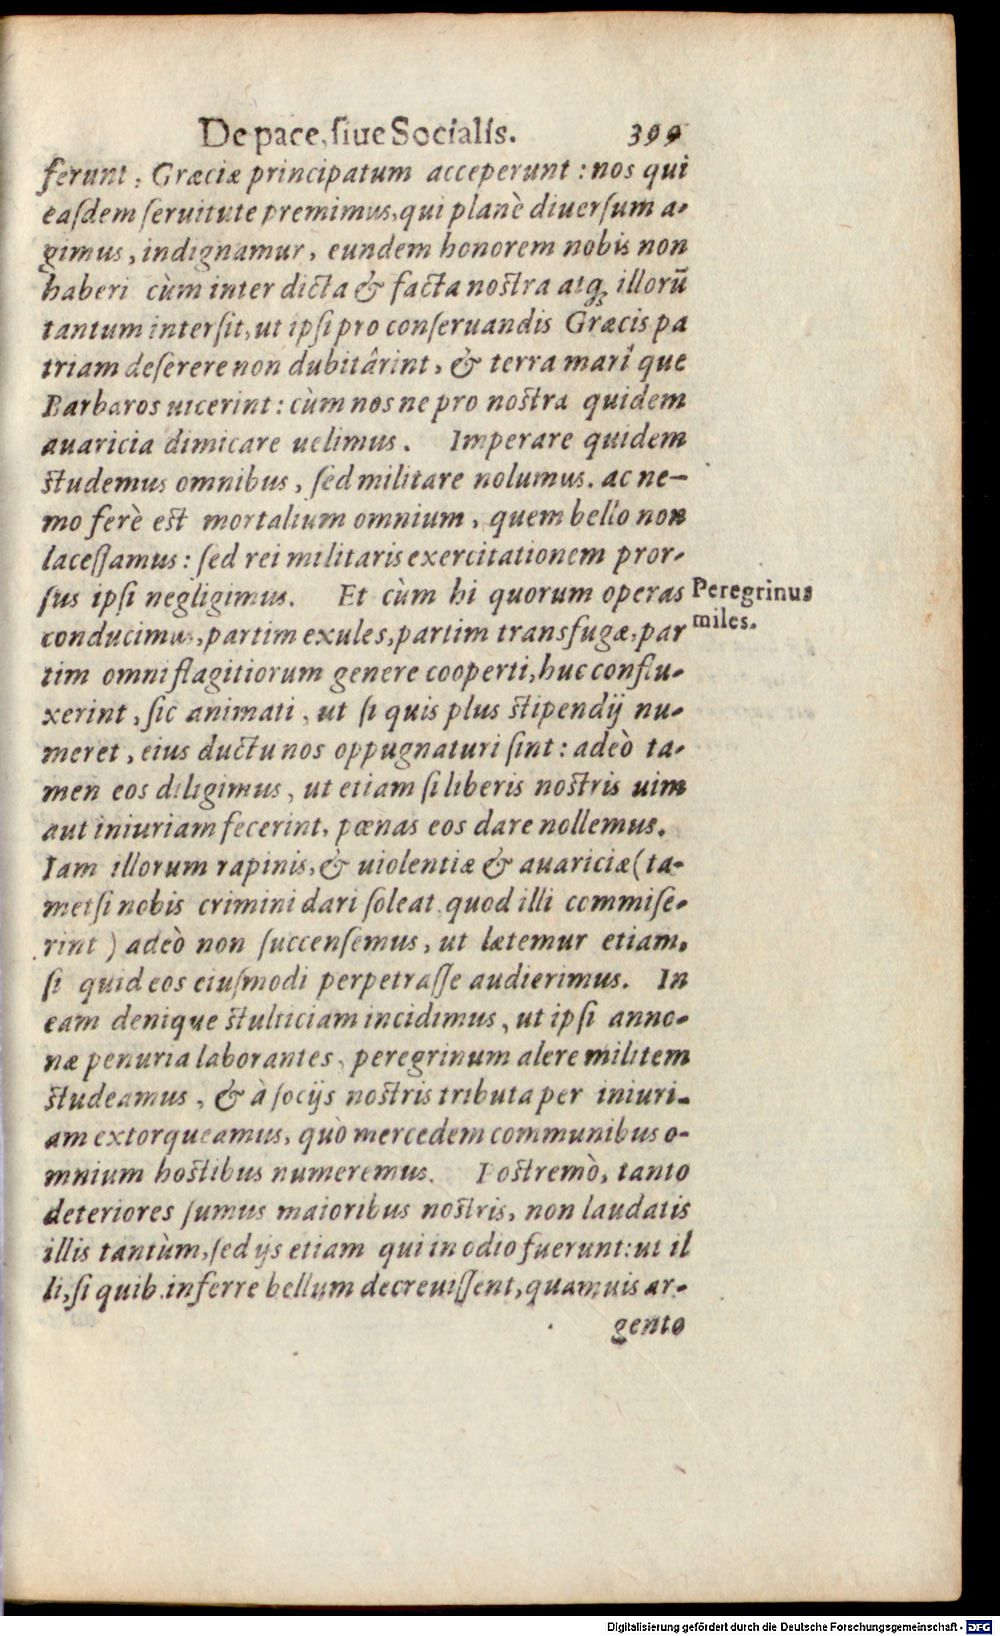 De pace, ſiue Socialis. 399
ferunt, Græciæ principatum acceperunt: nos qui
eaſdem ſeruitute premimus, qui planè diuerſum a-
gimus, indignamur, eundem honorem nobis non
haberi cùm inter dicta & facta noſtra atqꝫ illorũ
tantum interſit, ut ipſi pro conſeruandis Græcis pa
triam deſerere non dubitârint, & terra mariq́ue
Barbaros uicerint: cùm nos ne pro noſtra quidem
auaricia dimicare uelimus. Imperare quidem
ſtudemus omnibus, ſed militare nolumus. ac ne-
mo ferè eſt mortalium omnium, quem bello non
laceſſamus: ſed rei militaris exercitationem pror-
ſus ipſi negligimus. Et cùm hi quorum operas
Peregrinus
miles.
conducimus, partim exules, partim transfugæ, par
tim omni flagitiorum genere cooperti, huc conflu-
xerint, ſic animati, ut ſi quis plus ſtipendij nu-
meret, eius ductu nos oppugnaturi ſint: adeò ta-
men eos diligimus, ut etiam ſi liberis noſtris uim
aut iniuriam fecerint, pœnas eos dare nollemus.
Iam illorum rapinis, & uiolentiæ & auariciæ (ta-
metſi nobis crimini dari ſoleat, quod illi commiſe-
rint) adeò non ſuccenſemus, ut lætemur etiam,
ſi quid eos eiuſmodi perpetraſſe audierimus. In
eam denique ſtulticiam incidimus, ut ipſi anno-
næ penuria laborantes, peregrinum alere militem
ſtudeamus, & à ſocijs noſtris tributa per iniuri-
am extorqueamus, quò mercedem communibus o-
mnium hoſtibus numeremus. Poſtremò, tanto
deteriores ſumus maioribus noſtris, non laudatis
illis tantùm, ſed ijs etiam qui in odio fuerunt: ut il
li, ſi quib. inferre bellum decreuiſſent, quamuis ar-
gento
Digitalisierung gefördert durch die Deutsche Forschungsgemeinschaft - DFG